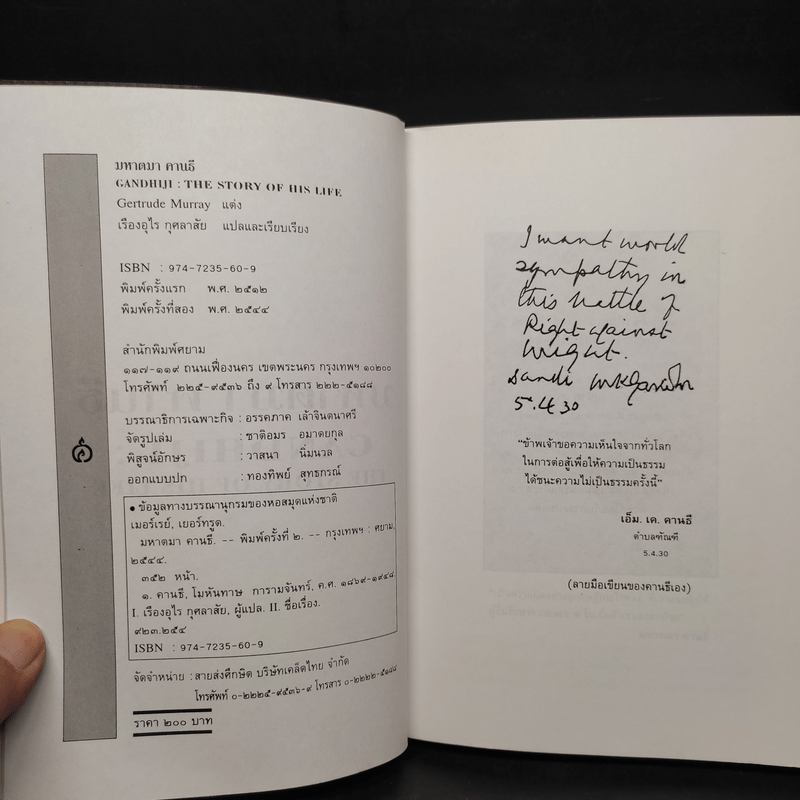 มหาตมา คานธี
GANDHIJI : THE STORY OF HIS LIFE
Gertrude Murray แต่ง
เรืองอุไร กุศลาสัย แปลและเรียบเรียง
ISBN : 974-7235-60-9
พิมพ์ครั้งแรก พ.ศ. ๒๕๑๒
พิมพ์ครั้งที่สอง พ.ศ. ๒๕๔๔
สำนักพิมพ์ศยาม
๑๑๗-๑๑๙ ถนนเฟื่องนคร เขตพระนคร กรุงเทพฯ ๑๐๒๐๐
โทรศัพท์ ๒๒๕-๙๕๓๖ ถึง ๙ โทรสาร ๒๒๒-๕๑๘๘
บรรณาธิการเฉพาะกิจ : อรรคภาค เล้าจินตนาศรี
จัดรูปเล่ม : ชาติอมร อมาตยกุล
พิสูจน์อักษร : วาสนา นิ่มนวล
ออกแบบปก : ทองทิพย์ สุทธกรณ์
● ข้อมูลทางบรรณานุกรมของหอสมุดแห่งชาติ
เมอร์เรย์, เยอร์ทรูด.
มหาตมา คานธี. -- พิมพ์ครั้งที่ ๒. -- กรุงเทพฯ : ศยาม,
๒๕๔๔.
๓๕๒ หน้า.
๑. คานธี, โมหันทาษ การามจันทร์, ค.ศ. ๑๘๖๙-๑๙๔๘.
I. เรืองอุไร กุศลาสัย, ผู้แปล. II. ชื่อเรื่อง.
๙๒๓.๒๕๔
ISBN : 974-7235-60-9
จัดจำหน่าย : สายส่งศึกษิต บริษัทเคล็ดไทย จำกัด
โทรศัพท์ ๐-๒๒๒๕-๙๕๓๖-๙ โทรสาร ๐-๒๒๒๒-๕๑๘๘
ราคา ๒๐๐ บาท
I want world
sympathy in
this battle of
Right against
might.
Dandi MKGandhi
5.4.30
“ข้าพเจ้าขอความเห็นใจจากทั่วโลก
ในการต่อสู้เพื่อให้ความเป็นธรรม
ได้ชนะความไม่เป็นธรรมครั้งนี้”
เอ็ม. เค. คานธี
ตำบลฑัณฑี
5.4.30
(ลายมือเขียนของคานธีเอง)